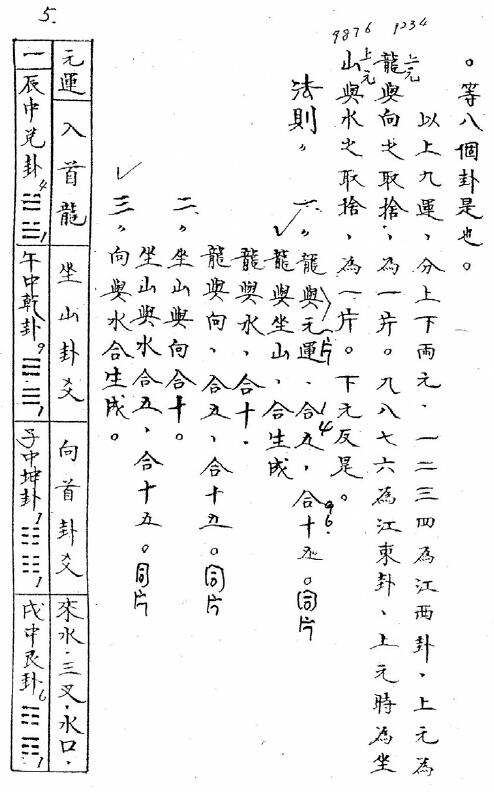 5.
9876 1234
。等八個卦是也。
以上九運、分上下兩元、一二三四為江西卦、上元為
龍與向之取捨、為一片。九八七六為江東卦、上元時為坐
上元
山與水之取捨、為一片。下元反是。
上元
法則。
一、龍與元運、合五、合十五。同片
片
1 4
9 6
✓
龍與坐山、合生成
龍與水、合十、
龍與向、合五、合十五。同片
二、坐山與向合十。
坐山與水合五、合十五。同片
✓
三、向與水合生成。
元運
入首龍
坐山卦爻
向首卦爻
來水、三叉、水口、
一
辰中兌卦 4 1
午中乾卦 9 1
子中坤卦 1 1
戌中艮卦 6 1